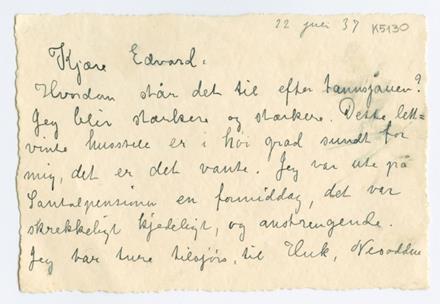 22 juli 37 K5130
Kjære Edvard:
Hvordan står det til efter tannsjauen?
Jeg blir sterkere og sterkere. Dette lett-
vinte husstell er i høi grad sundt for
mig, det er det vante. Jeg var ute på
Santalpensionn en formiddag, det var
skrekkeligt kjedeligt, og anstrengende.
Jeg har ture tilsjøs, til Huk, Nesodden